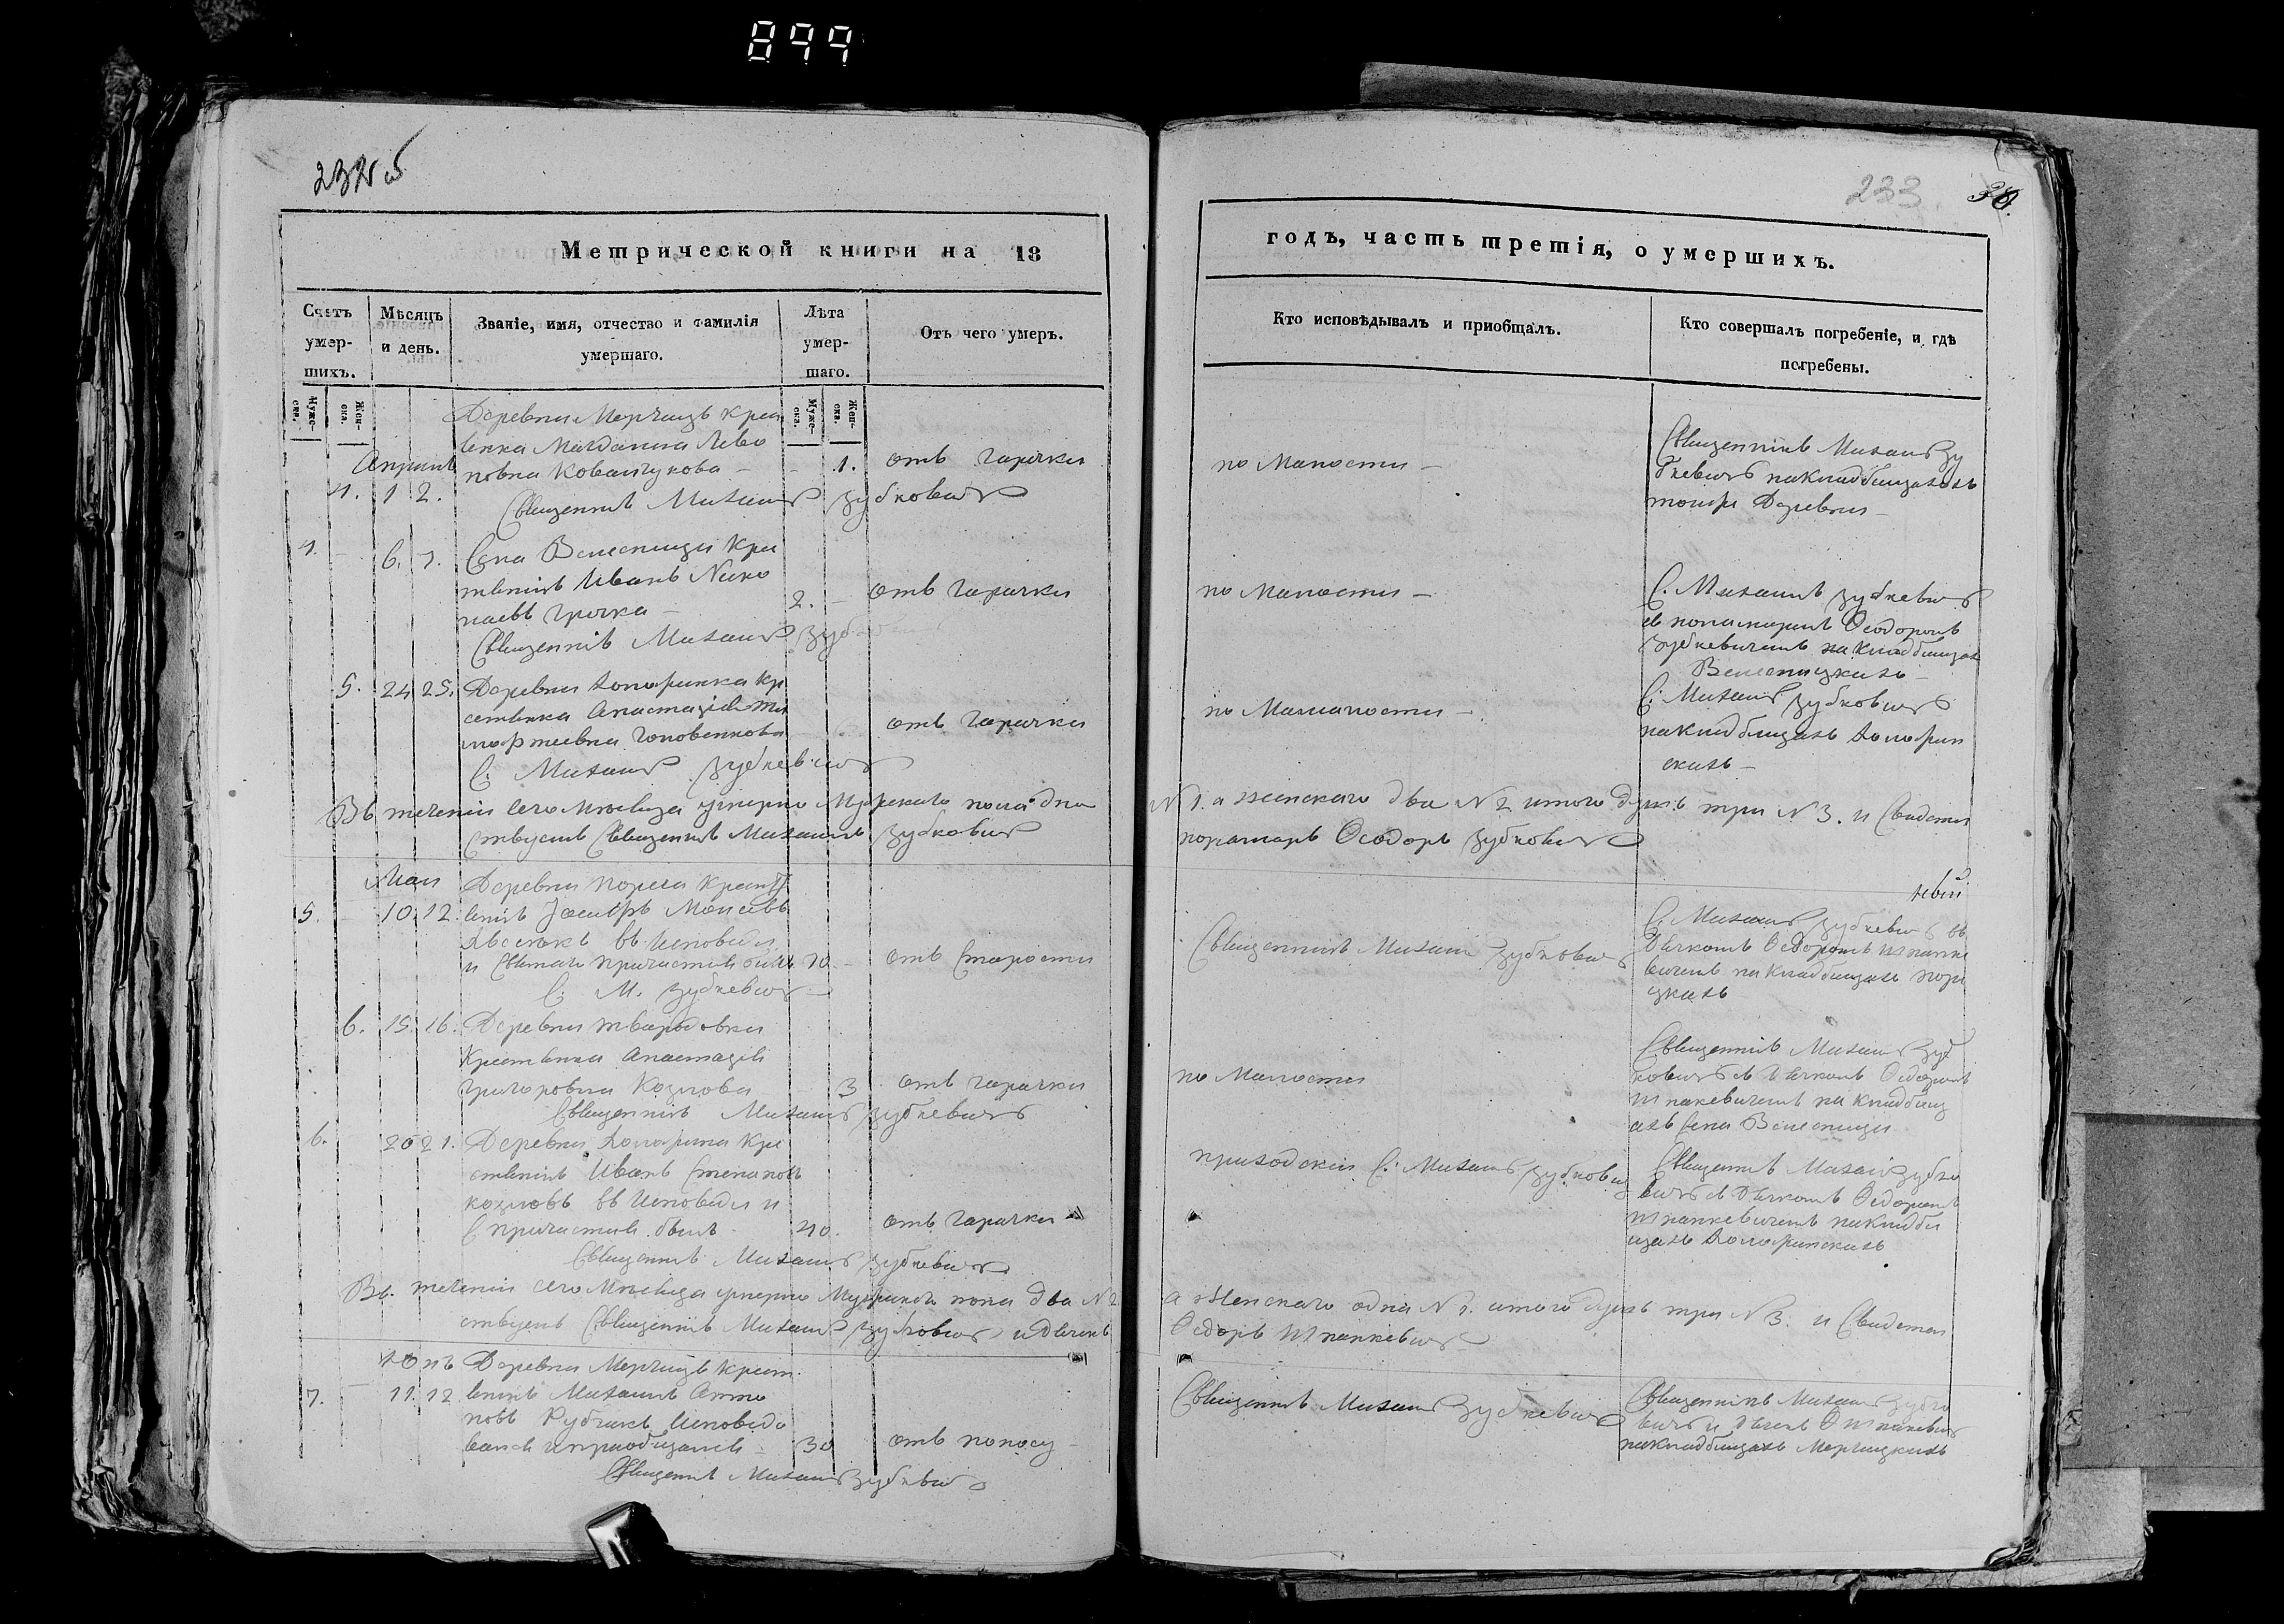 899
232 об
233
38.
Метрической книги на 18
годъ, часть третія, о умершихъ.
Счетъ умер-
шихъ.
Мѣсяцъ
и день.
Званіе, имя, отчество и фамилія
умершаго.
Лѣта
умер-
шаго.
Отъ чего умеръ.
Кто исповѣдывалъ и приобщалъ.
Кто совершалъ погребеніе, и гдѣ
погребены.
Муже-
ска.
Жен-
ска.
Муже-
ска.
Жен-
ска.
Деревни Мерчицъ крест
Апрель
4. 1 2.
янка Магдалина Лево
новна Ковальчукова – 1. отъ горячки
Священникъ Михаилъ Зубковичъ
по малости –
Священникъ Михаилъ Зу
бкевичъ на кладбищахъ
тойже Деревни –
4. – 6. 7. Села Велесницы кре
Иванъ Нико
лаевъ Грочка – 2. – отъ горячки
Священникъ Михаилъ Зуб
по малости –
С. Михаилъ Зубкевичъ
съ понамаремъ Феодоромъ
Зубкевичемъ на кладбищах
Велесницкихъ –
5. 24 25. Деревни кр
естянка Анастазія
Головенкова отъ горячки
С. Михаилъ Зубкевичъ
по малости –
С. Михаилъ Зубковичъ
на кладбищахъ
скихъ –
Въ теченіи сего мѣсяца умерло Мужескаго пола одна
N 1. а женскаго два N 2 итого душъ три N 3. и Свидетел
ствуемъ Священникъ Михаилъ Зубковичъ
понамарь Феодоръ Зубковичъ
Маи
5. – 10. 12. Деревни крест
янинъ Мойсеевъ
въ исповеди
и святаго причастія былъ 70. – отъ старости
С. М. Зубкевичъ –
Священникъ Михаилъ Зубковичъ
ный
С. Михаилъ Зубкевичъ съ
дьячкомъ Феодоромъ Шпанке
вичемъ на кладбищахъ
цкихъ
6. 15. 16. Деревни
крестянка Анастазія
Григоровна Козлова – 3 отъ горячки
Священникъ Михаилъ Зубкевичъ
по малости
Священникъ Михаилъ Зуб
ковичъ съ дьячкомъ Феодоромъ
Шпанкевичемъ на кладбищ
ахъ села Велесницы
6. 20 21. Деревни кре
стянинъ Иванъ Степановъ
Козловъ въ исповеди и
С причастія былъ – 40. отъ горячки
Священникъ Михаилъ Зубкевичъ
приходскій С. Михаилъ Зубкович
Священникъ Михаилъ Зубке
вичъ съ дьячкомъ Феодоромъ
Шпанкевичемъ на кладби
щахъ
Въ теченіи сего мѣсяца умерло Мужескаго пола два N 2
а женскаго одна N 1. итого душъ три N 3. и Свидетел
ствуемъ Священникъ Михаилъ Зубковичъ и дьячекъ
Феодоръ Шпанкевичъ
Юнь
7. – 11. 12 Деревни Мерчицъ крест
янинъ Михаилъ Анто
новъ Рубчикъ исповедо
вался и приобщался – 30 отъ поносу –
Священникъ Михаилъ Зубкевичъ
Священникъ Михаилъ Зубкевичъ
Священникъ Михаилъ Зубке
вичъ и дьячекъ Ф Шпанкевичъ
на кладбищахъ Мерчицкихъ